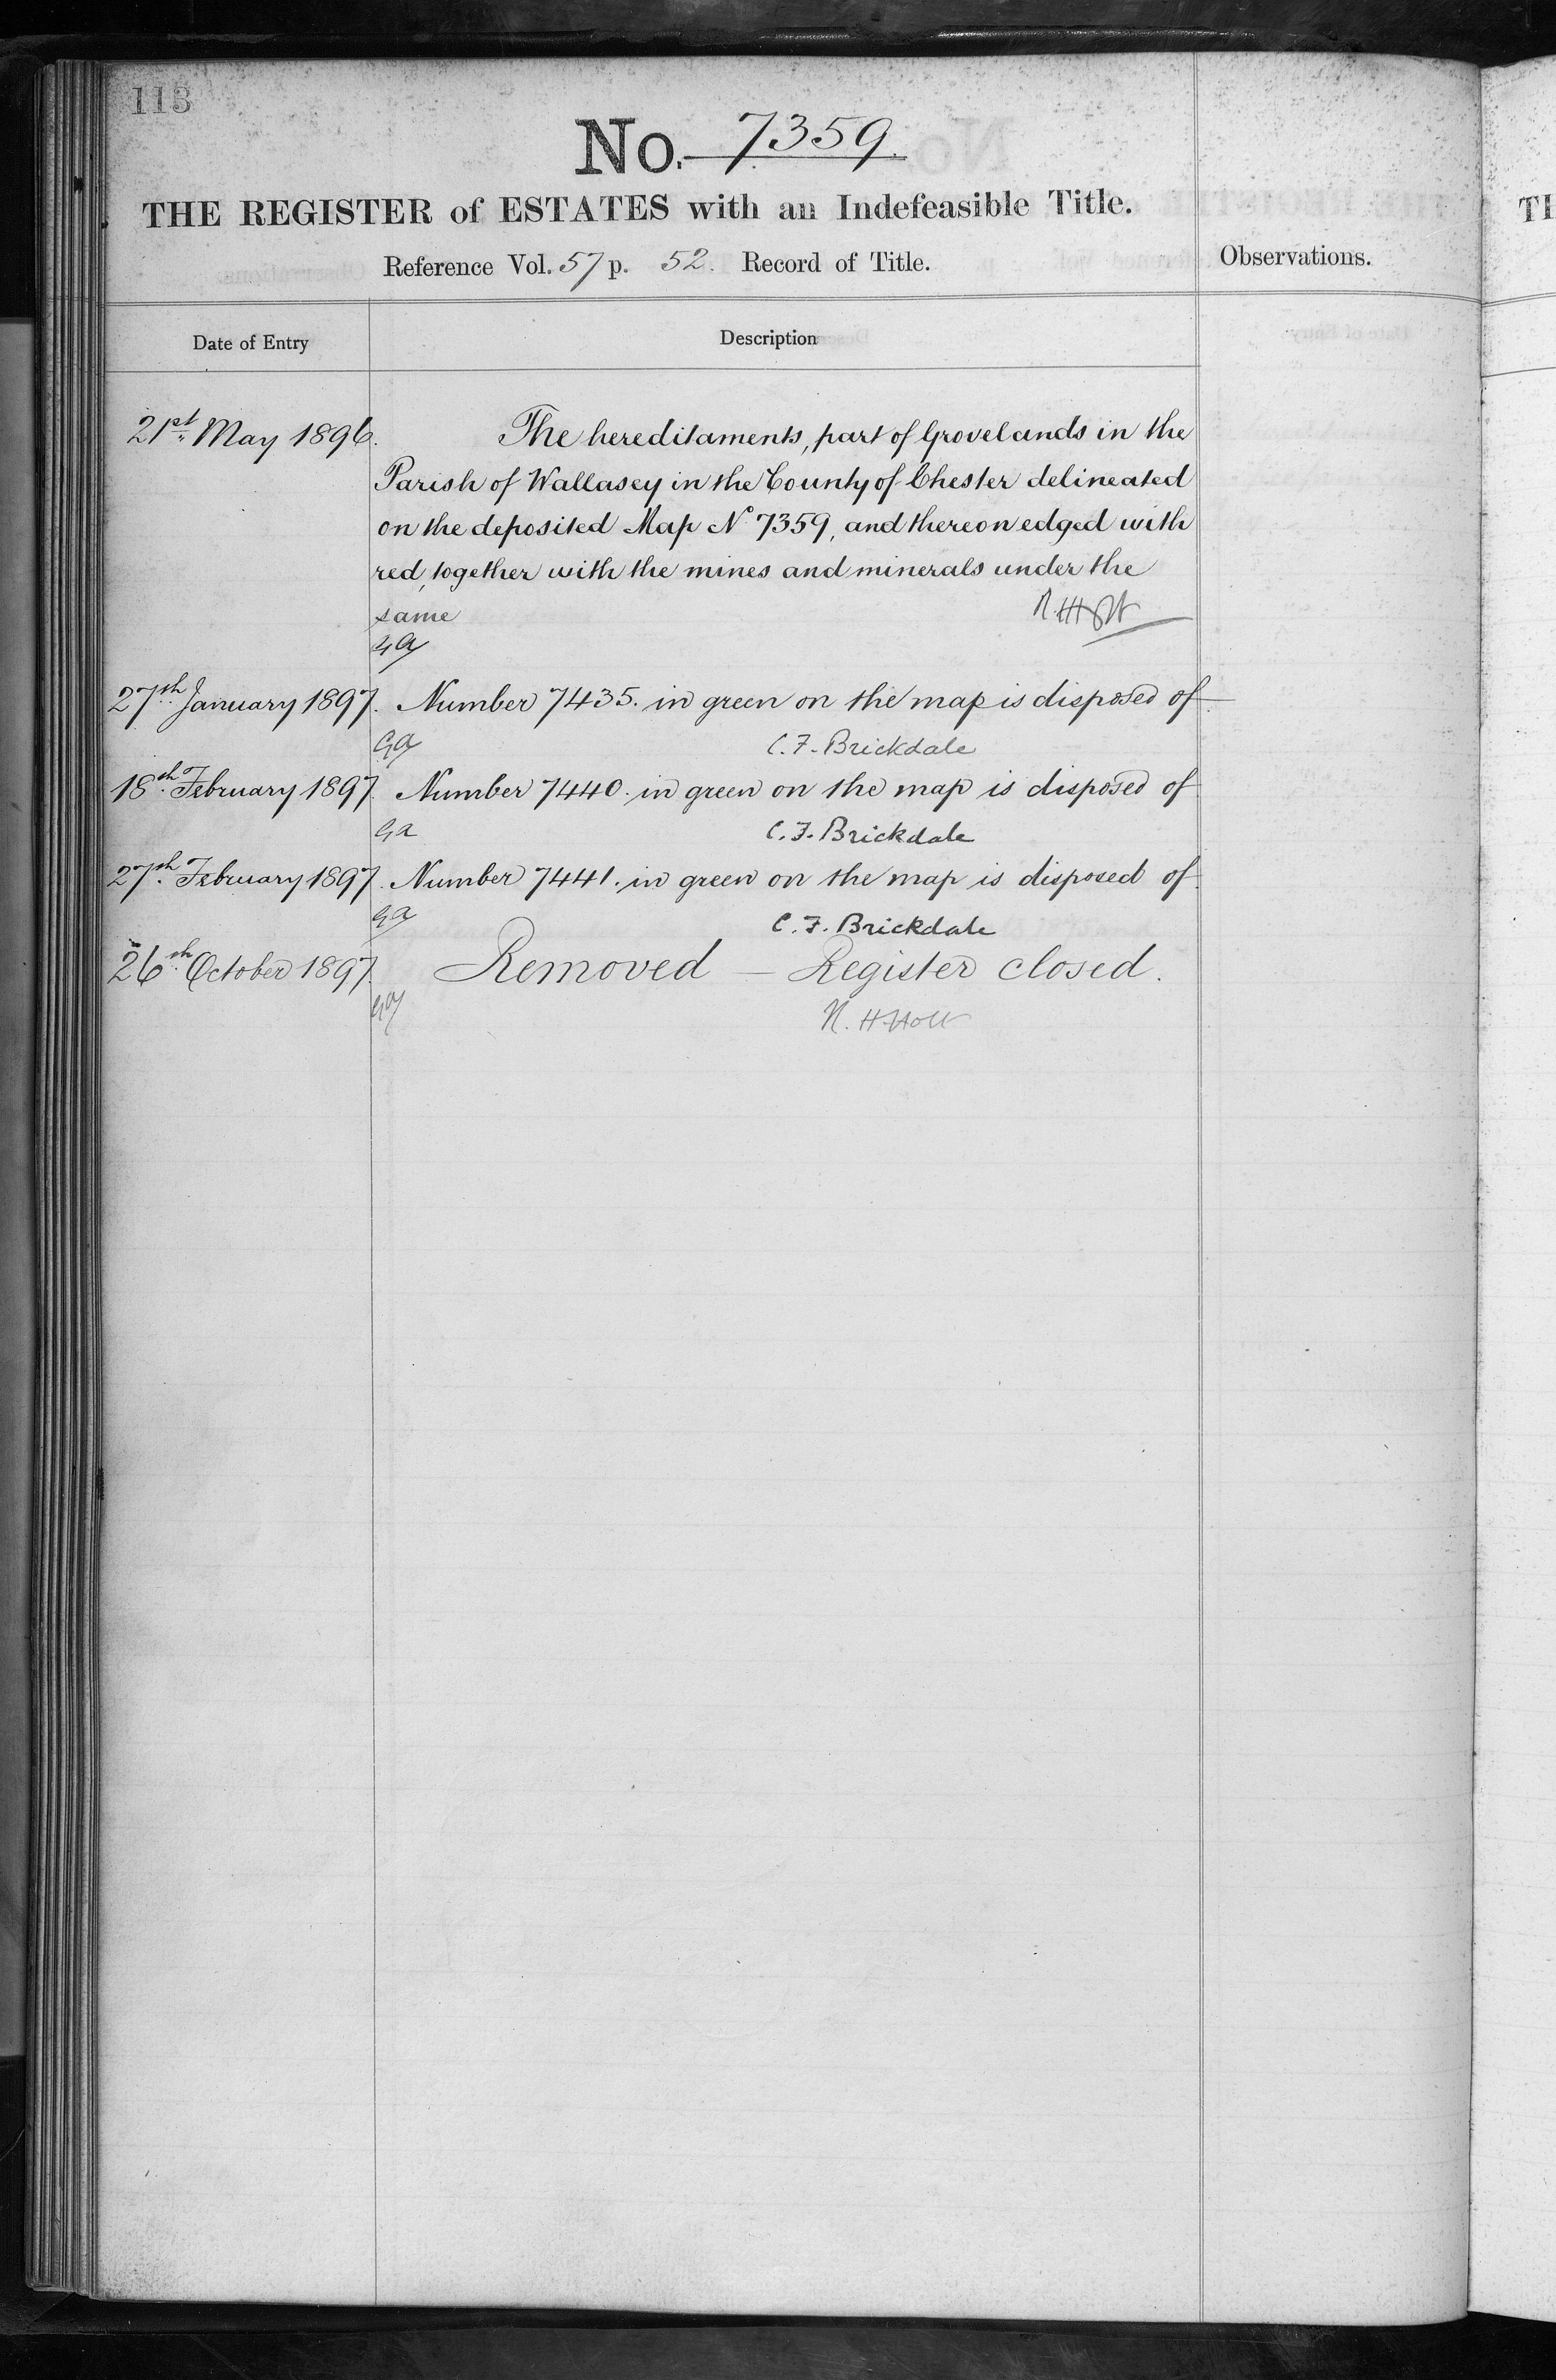 113
No. 7359.
THE REGISTER of ESTATES with an Indefeasible Title.
Reference Vol. 57 p. 52. Record of Title.
Observations.
Date of Entry
Description
21st May 1896. The hereditaments, part of Grovelands in the
Parish of Wallasey in the County of Chester delineated
on the deposited Map No 7359, and thereon edged with
red, together with the mines and minerals under the
same
27th January 1897. Number 7435. in green on the map is disposed of
C. F. Brickdale
18th February 1897. Number 7440. in green on the map is disposed of
C. F. Brickdale
27th February 1897. Number 7441. in green on the map is disposed of
C. F. Brickdale
26th October 1897. Removed — Register closed.
R. H. Holt